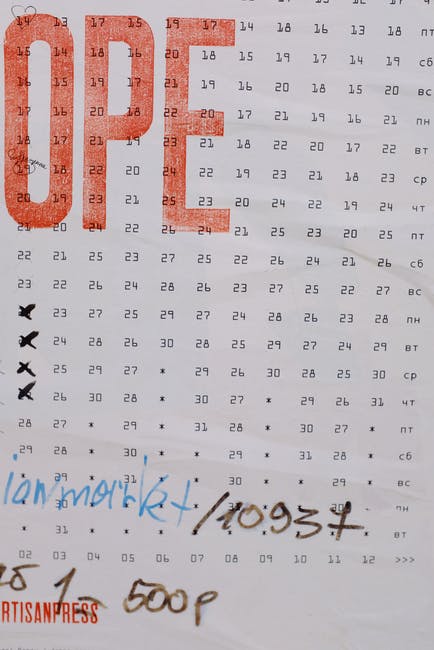 OPE
14 13 17 15 19 17 14 18 16 13 18 пт
15 14 18 16 20 18 15 19 17 14 19 сб
16 15 19 17 21 19 16 20 18 15 20 вс
17 16 20 18 22 20 17 21 19 16 21 пн
18 17 21 19 23 21 18 22 20 17 22 вт
19 18 22 20 24 22 19 23 21 18 23 ср
20 19 23 21 25 23 20 24 22 19 24 чт
21 20 24 22 26 24 21 25 23 20 25 пт
22 21 25 23 27 25 22 26 24 21 26 сб
23 22 26 24 28 26 23 27 25 22 27 вс
23 27 25 29 27 24 28 26 23 28 пн
24 28 26 30 28 25 29 27 24 29 вт
25 29 27 * 29 26 30 28 25 30 ср
26 30 28 * 30 27 * 29 26 31 чт
28 27 * 29 * 31 28 * 30 27 * пт
29 28 * 30 * * 29 * 31 28 * сб
* 29 * 31 * * 30 * * 29 * вс
ionmarkt /10937
30 * * 31 * * 30 * пн
* 31 * * * * * * * * * вт
02 03 04 05 06 07 08 09 10 11 12 >>>
1- 500р
RTISANPRESS